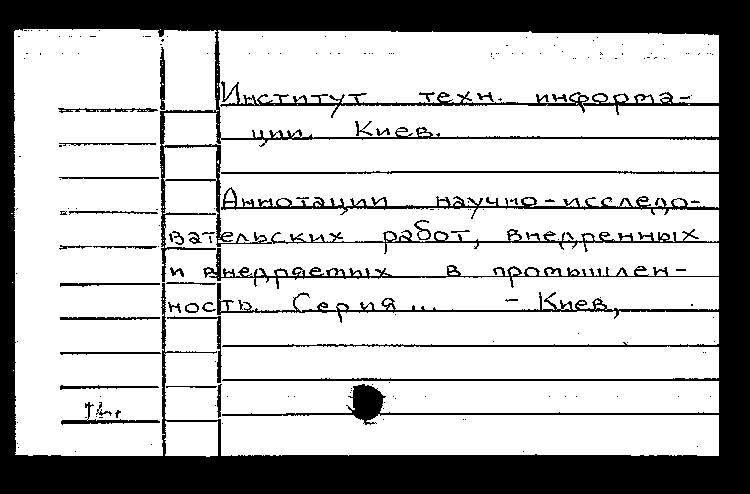 Институт техн. информа-
ции. Киев.
Аннотации научно-исследо-
вательских работ, внедренных
и внедряемых в промышлен-
ность. Серия... - Киев,